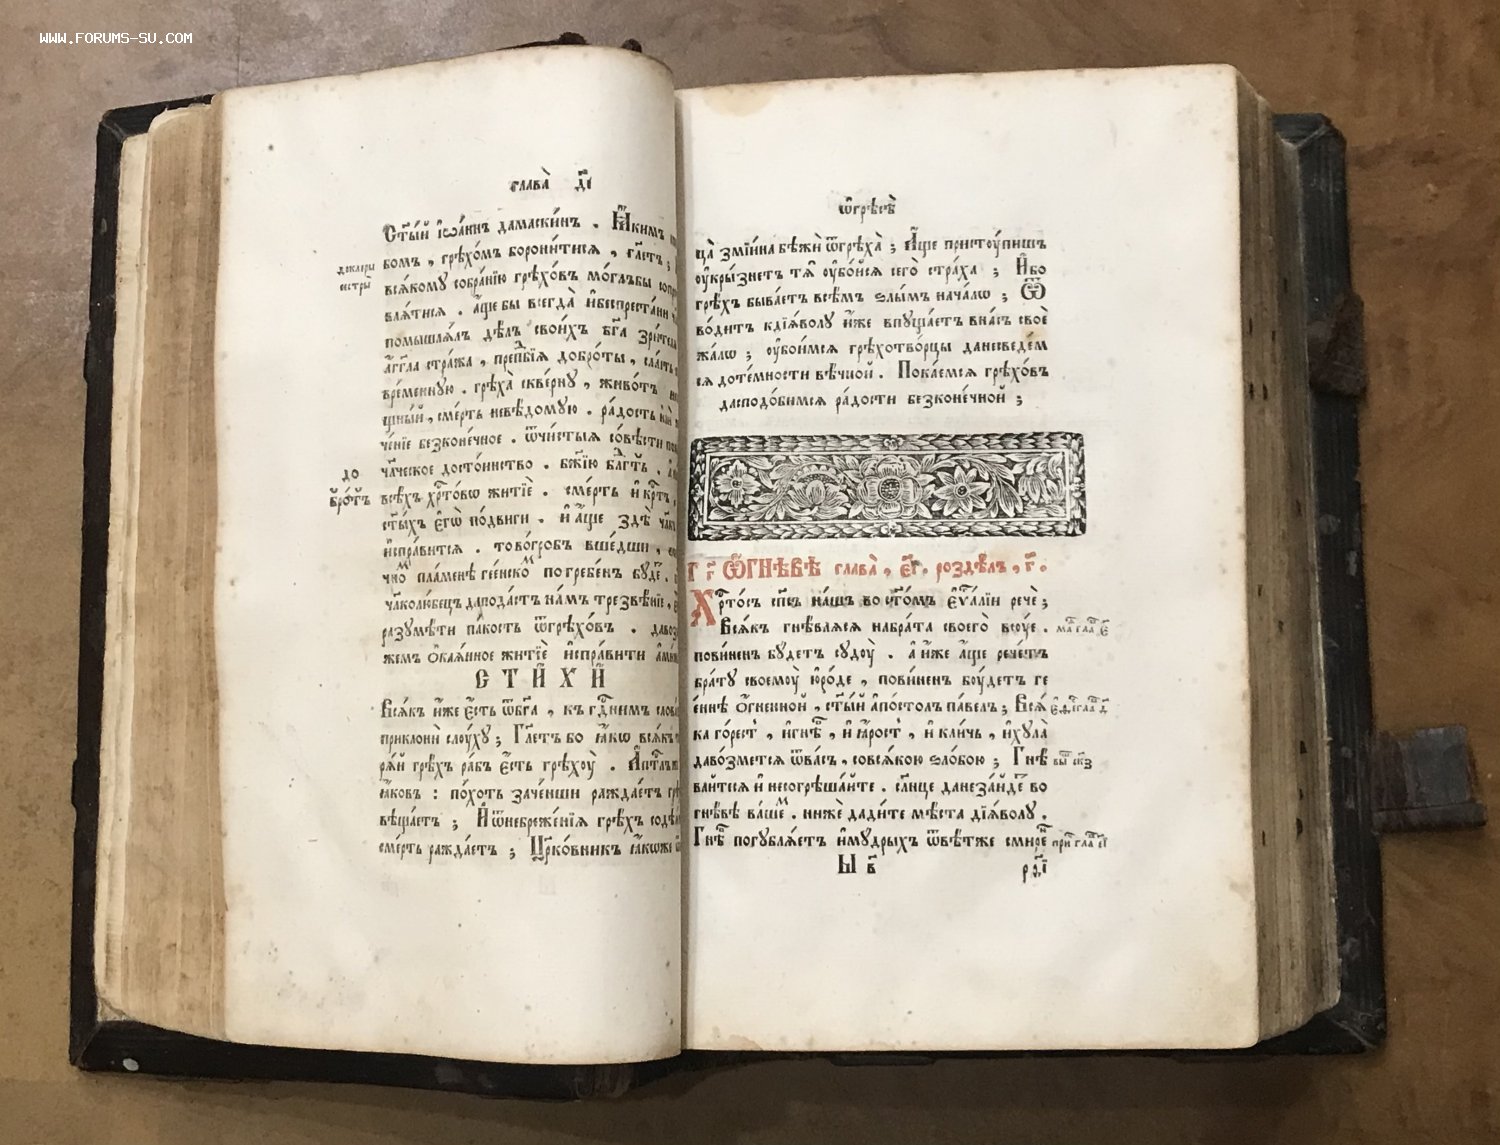 WWW.FORUMS-SU.COM
глава̀ д҃і
Ст҃ы́й і҆ѡа́ннъ дамаски́нъ . Ꙗ҆́кимъ
бомъ , грѣхо́мъ боро́нитисѧ , гл҃етъ ;
вся́кому собра́нїю грѣхо́въ мо́глъбы
валѧ́тисѧ . а҆́ще бы всегда̀ и҆безпреста́ни
помышлѧ́лъ дѣ́лъ свои́хъ бг҃а зри́телѧ
а҆́гг҃ла стра́жа , препⷣбїѧ добро́ты ,
вре́менную . грѣха̀ скве́рну , живо́тъ
щны́й , сме́рть невѣ́домую . ра́дость
че́нїе безконе́чное . ѿчи́стыѧ со́вѣсти
чл҃ческое досто́инство . бж҃їю бл҃гⷣть .
до
бро́тъ
всѣ́хъ хрⷭ҇то́вѡ житїѐ . сме́рть и҆ крⷭ҇тъ ,
ст҃ы́хъ є҆гѡ̀ по́двиги . и҆ а҆́ще здѣ̀
и҆спра́витсѧ . то во́гробъ вше́дши ,
чноⷨ пла́менѣ гее́нскоⷨ погребе́нъ бу́деⷮ .
чл҃колю́бецъ да пода́стъ на́мъ трезвѣ́нїе ,
разумѣ́ти па́кость ѿгрѣхо́въ .
жемъ ѻ҆кая́нное житїѐ и҆спра́вити а҆ми́нь
СТИХИ҆
Всѧ́къ и҆́же є҆́сть ѿбг҃а , къ гдⷭ҇нимъ
приклонѝ слоу́ху ; Гл҃етъ бо ꙗ҆́кѡ всѧ́къ
рѧ́й грѣ́хъ ра́бъ є҆́сть грѣхоу̀ . Апⷭ҇лъ
ꙗ҆́ковъ : по́хоть заче́нши ражда́етъ
вѣща́етъ ; И҆ ѡ҆небреже́нїѧ грѣ́хъ
сме́рть ражда́етъ ; Црⷪ҇ко́вникъ ꙗ҆́коже
ѡ҆грѣсѣ̀
ца̀ змїи́на бѣжѝ ѿгрѣха̀ ; А҆́ще пристоу́пишъ
оу҆кры́знетъ тѧ̀ оу҆бо́йсѧ сего̀ стра́ха ; И҆́бо
грѣ́хъ быва́етъ всѣ́мъ ѕлы́мъ нача́лѡ ; Ѿ
во́дитъ кдїѧ́волу и҆́же впуща́етъ вна́съ своѐ
жа́лѡ ; оу҆бои́мсѧ грѣхотво́рцы данесведе́м
сѧ доте́мности вѣ́чной . Пока́емсѧ грѣхо́въ
даспо́добимсѧ ра́дости безконе́чной ;
ѾГНѢВѢ глава̀ , є҃і . роздѣ́лъ , г҃ .
Хрⷭ҇то́съ сп҃съ на́шъ во ст҃о́мъ є҆ѵⷢ҇а́лїи речѐ ;
Всѧ́къ гнѣ́ваѧсѧ набра́та своего̀ всу́е .
пови́ненъ бу́детъ судоу̀ . а҆ и҆́же а҆́ще рече́тъ
бра́ту своемоу̀ ю҆ро́де , пови́ненъ бу́детъ ге
е́ннѣ ѻ҆́гненной , ст҃ы́й а҆по́столъ па́велъ ; Всѧ́
ка го́рестⸯ , и҆гнѣ́въ , и҆ ꙗ҆́ростⸯ , и҆ кли́чь , и҆хула̀
даво́зметсѧ ѿва́съ , совсѧ́кою ѕло́бою ; Гнѣ́
вайтесѧ и҆ несогрѣша́йте . сл҃нце данеза́йдеⷮ во
гнѣ́вѣ ва́шеⷨ . нижѐ дади́те мѣ́ста дїѧ́волу .
Гнѣ́въ погублѧ́етъ и҆му́дрыхъ ѿвѣ́тже смире́
Ы в҃